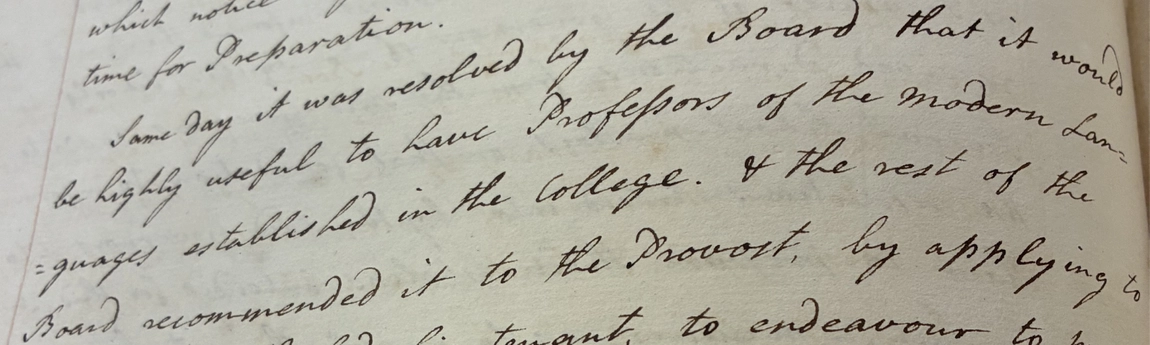 which notice
time for Preparation.
Same day it was resolved by the Board that it would
be highly useful to have Profeſsors of the modern Lan=
=guages established in the College. & the rest of the
Board recommended it to the Provost, by applying to
to endeavour to